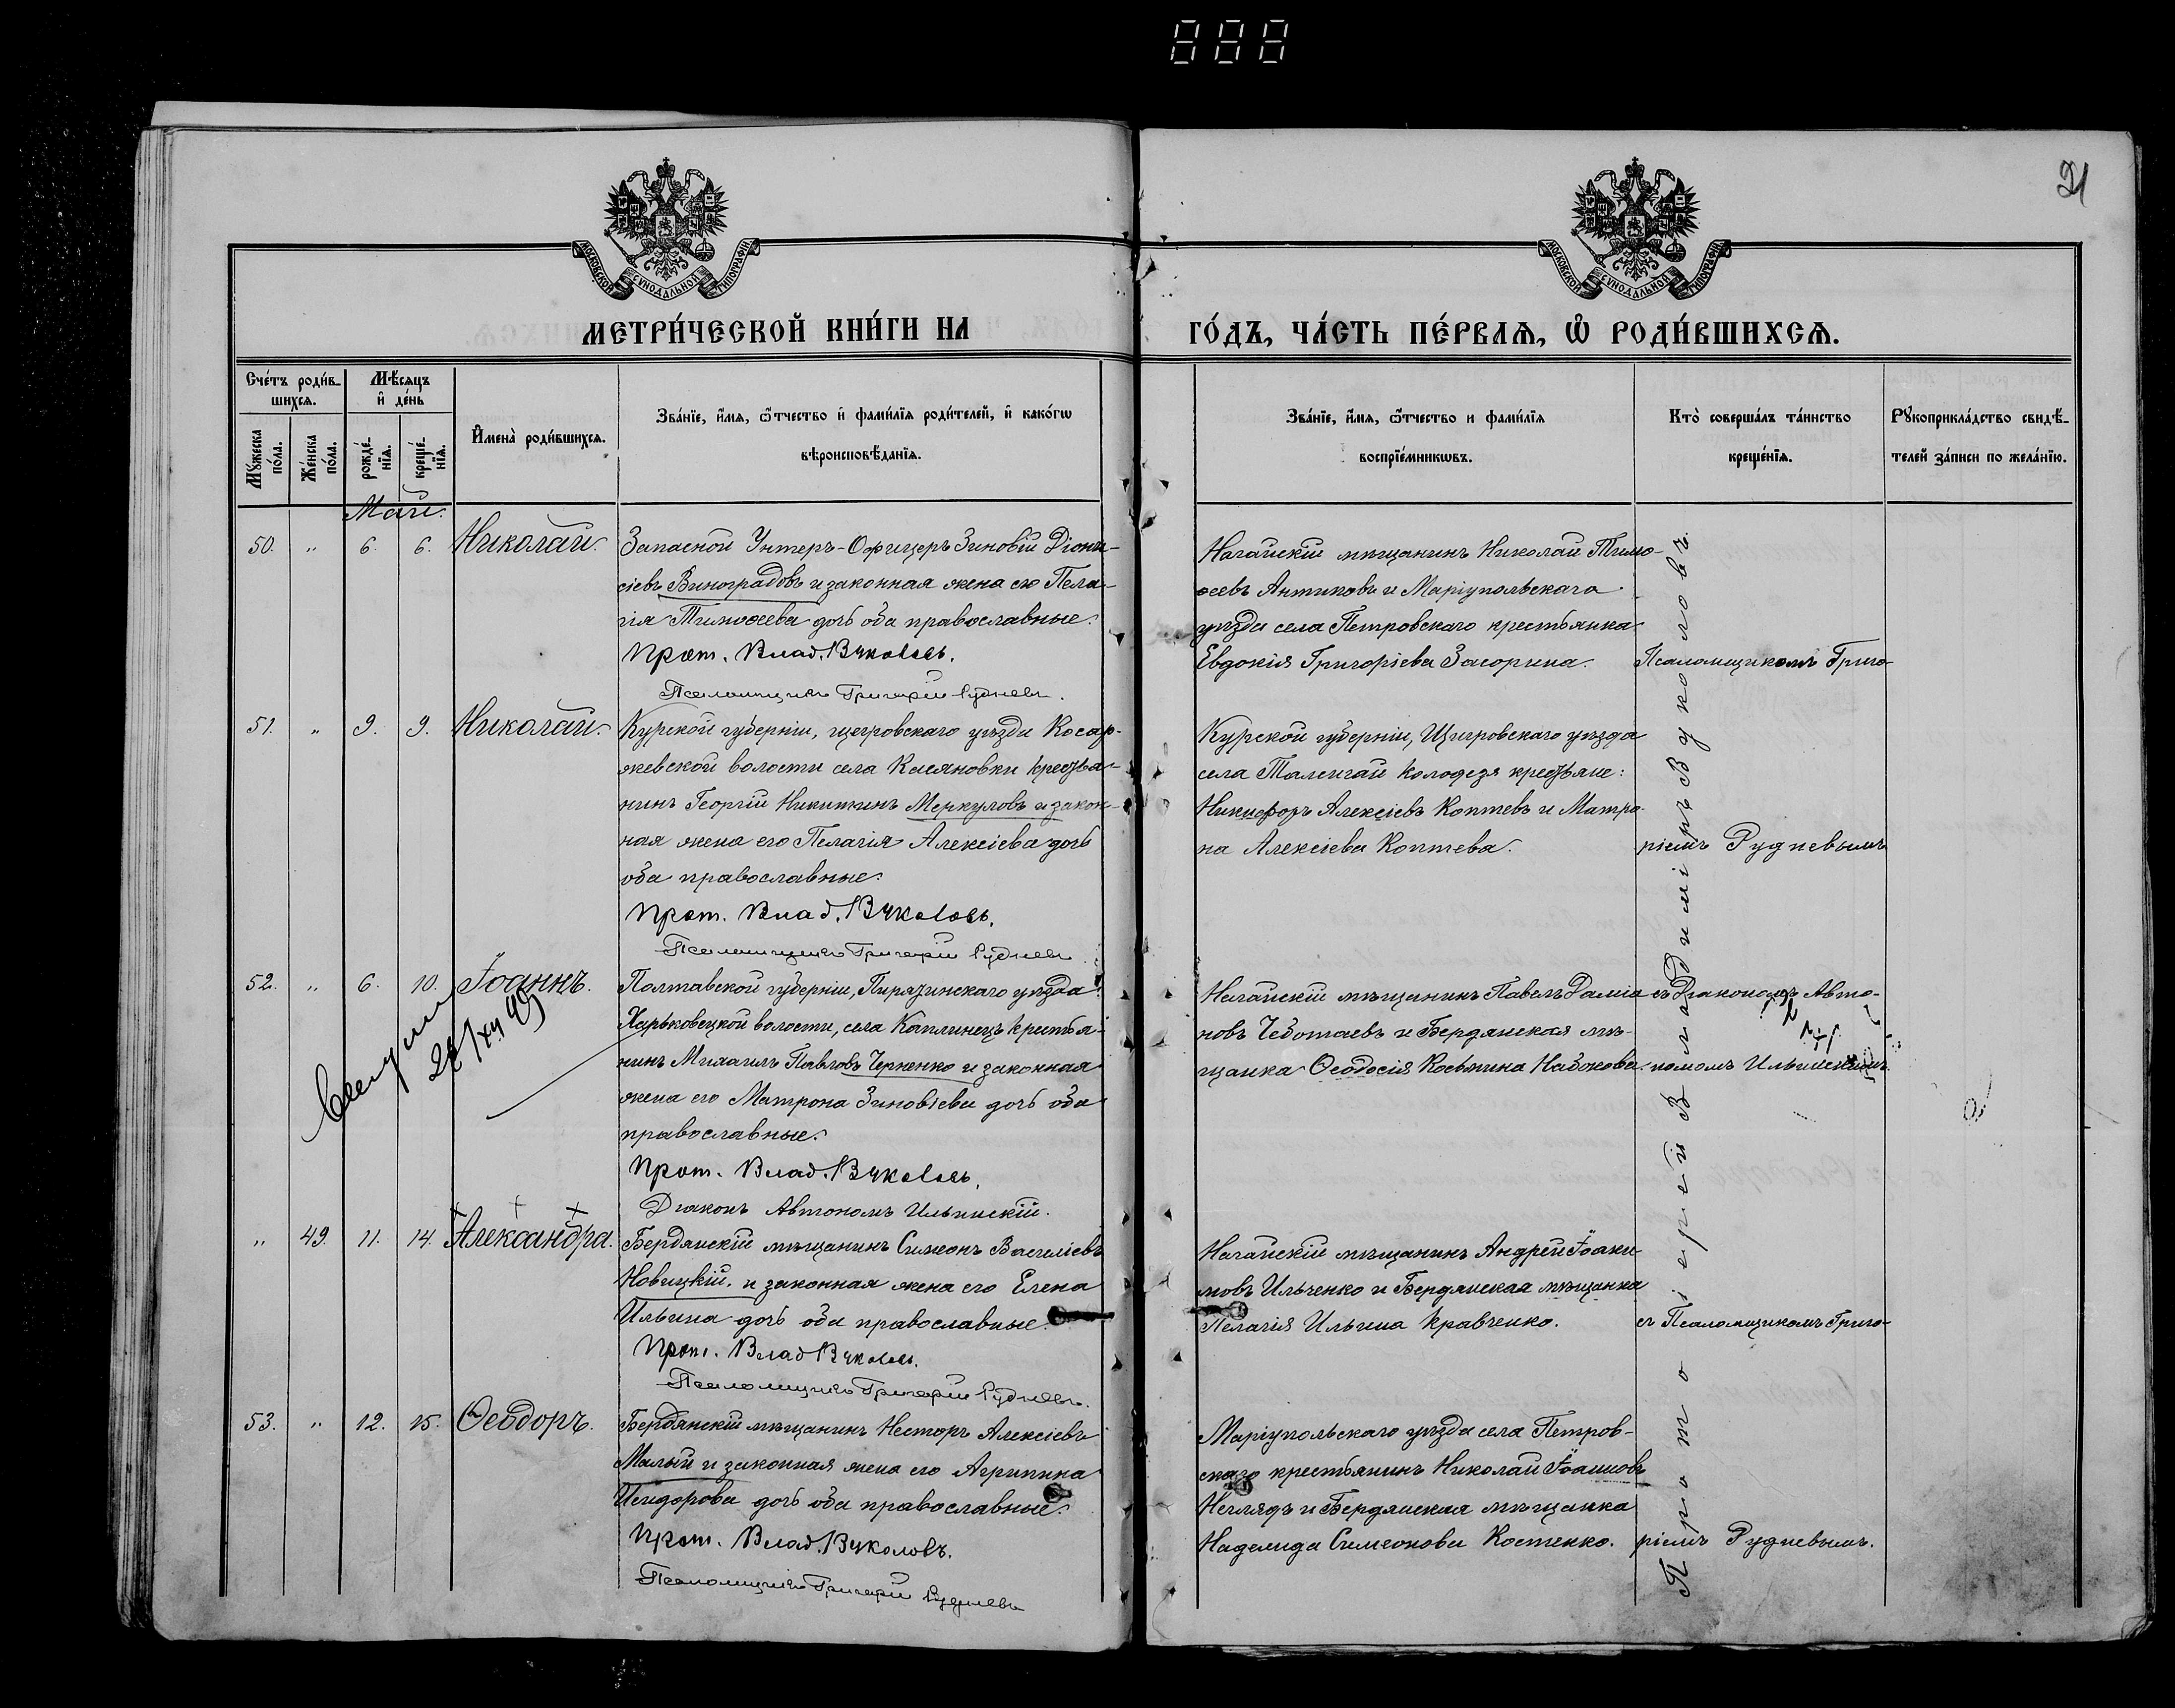 888
21
МОСКОВСКОЙ СУНОДАЛЬНОЙ ТИПОГРАФІИ
МОСКОВСКОЙ СУНОДАЛЬНОЙ ТИПОГРАФІИ
МЕТРИ́ЧЕСКОЙ КНИ́ГИ НА
ГО́ДЪ, ЧА́СТЬ ПЕ́РВАѦ, Ѡ҆ РОДИ́ВШИХСѦ.
Сче́тъ роди́в-
шихсѧ.
Мѣ́сѧцъ
и҆ де́нь
Мꙋ́жеска по́ла.
Же́нска по́ла.
рожде́-нїѧ.
креще́-нїѧ.
И҆мена̀ роди́вшихсѧ.
Зва́нїе, и҆́мѧ, ѻ҆́тчество и҆ фами́лїѧ роди́телей, и҆ како́гѡ
вѣроисповѣ́данїѧ.
Зва́нїе, и҆́мѧ, ѻ҆́тчество и фами́лїѧ
воспрїе́мникѡвъ.
Кто̀ соверша́лъ та́инство
креще́нїѧ.
Рꙋкоприкла́дство свидѣ́-
телей за́писи по жела́нїю.
Май.
50. " 6. 6. Николай.
Запасной Унтеръ-Офицеръ Зиновій Діони-
сіевъ Виноградовъ и законная жена его Пела-
гія Тимоѳеева дочь оба православные.
Прот. Влад. Вуколовъ.
Псаломщикъ Григорій Рудневъ.
Ногайскій мѣщанинъ Николай Тимо-
ѳеевъ Антиковъ и Маріупольскаго
уѣзда села Петровскаго крестьянка
Евдокія Григоріева Засорина.
Псаломщикомъ Григо-
51. " 9. 9. Николай.
Курской губерніи, щигровскаго уѣзда Косор-
жевской волости села Касяновки крестья-
нинъ Георгій Никитинъ Меркуловъ и закон-
ная жена его Пелагія Алексіева дочь
оба православные.
Прот. Влад. Вуколовъ.
Псаломщикъ Григорій Рудневъ
Курской губерніи, Щигровскаго уѣзда
села колодезя крестьяне:
Никифоръ Алексіевъ Коптевъ и Матро-
на Алексіева Коптева.
ріемъ Рудневымъ
52. " 6. 10. Іоаннъ.
28/XII 49
Полтавской губерніи, Пирятинскаго уѣзда
Харьковецкой волости, села Каплинецъ крестья-
нинъ Михаилъ Павловъ Черненко и законная
жена его Матрона Зиновіева дочь оба
православные.
Прот. Влад. Вуколовъ.
Діаконъ Автономъ Ильинскій.
Ногайскій мѣщанинъ Павелъ Даміа-
новъ Чеботаевъ и Бердянская мѣ-
щанка Ѳеодосія Косьмина Набокова.
съ Діакономъ Авто-
номомъ Ильинскимъ
" 49. 11. 14. Александра.
Бердянскій мѣщанинъ Симеонъ Василіевъ
Новицкій и законная жена его Елена
Ильина дочь оба православные.
Прот. Влад. Вуколовъ.
Псаломщикъ Григорій Рудневъ.
Ногайскій мѣщанинъ Андрей Іоаки-
мовъ Ильченко и Бердянская мѣщанка
Пелагія Ильина Кравченко.
съ Псаломщикомъ Григо-
53. " 12. 15. Ѳеодоръ.
Бердянскій мѣщанинъ Несторъ Алексіевъ
Малый и законная жена его Агрипина
Исидорова дочь оба православные.
Прот. Влад. Вуколовъ.
Псаломщикъ Григорій Рудневъ
Маріупольскаго уѣзда села Петров-
скаго крестьянинъ Николай Іоанновъ
Неглядъ и Бердянская мѣщанка
Надежда Симеонова Костенко.
ріемъ Рудневымъ.
Протоіерей Владиміръ Вуколовъ.